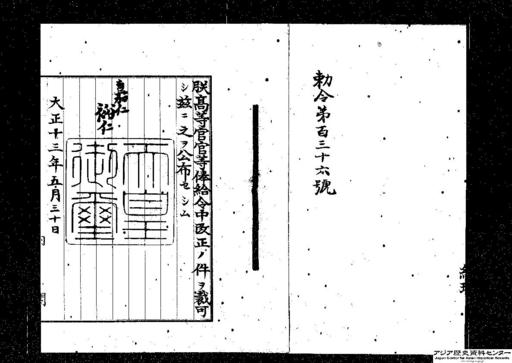 勅令第百三十六號
朕高等官官等俸給令中改正ノ件ヲ裁可
シ茲ニ之ヲ公布セシム
嘉仁
裕仁
天皇御璽
大正十三年五月三十日
内閣
アジア歴史資料センター
Japan Center for Asian Historical Records